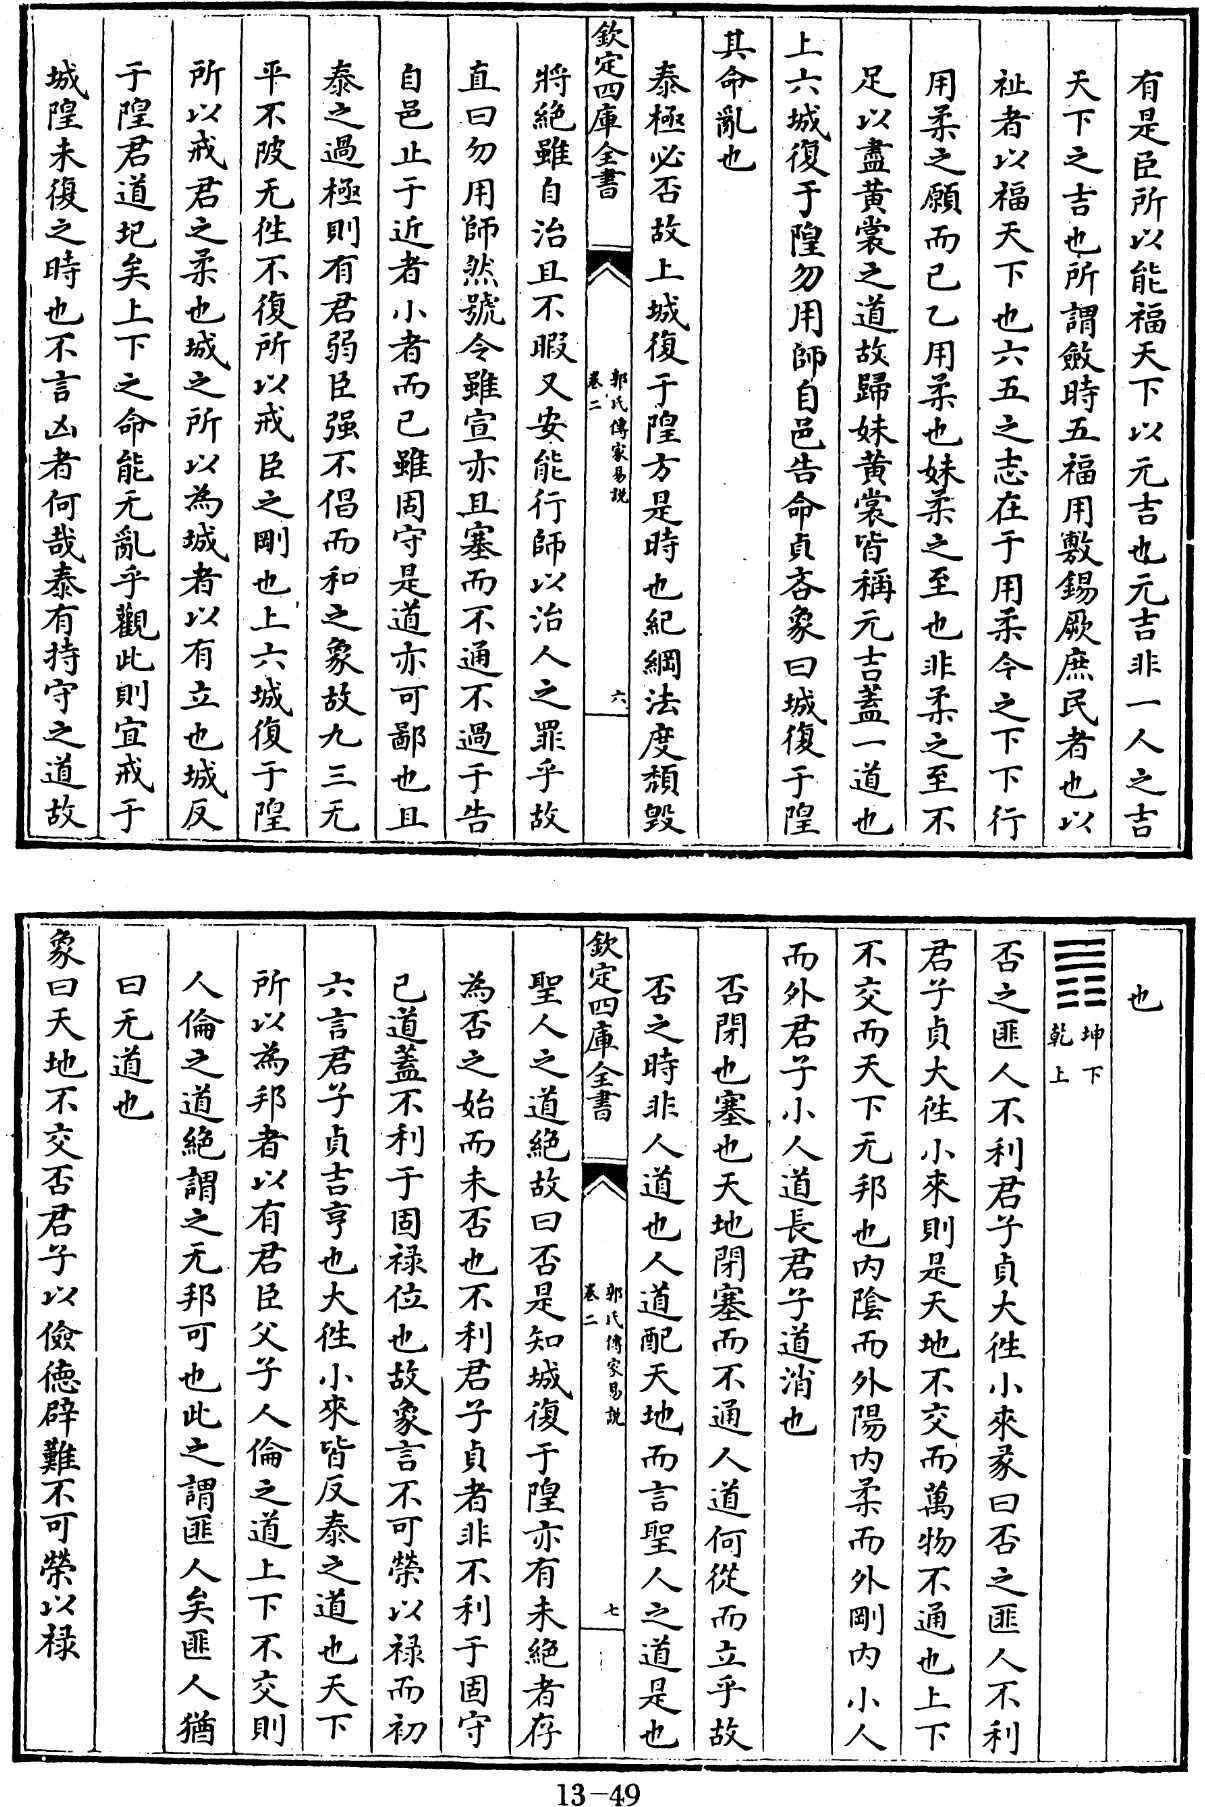 有是臣所以能福天下以元吉也元吉非一人之吉
天下之吉也所謂斂時五福用敷錫厥庶民者也以
祉者以福天下也六五之志在于用柔今之下下行
用柔之願而已乙用柔也妹柔之至也非柔之至不
足以盡黄裳之道故歸妹黄裳皆稱元吉蓋一道也
上六城復于隍勿用師自邑告命貞吝象曰城復于隍
其命亂也
泰極必否故上城復于隍方是時也紀綱法度頽毀
欽定四庫全書
郭氏傳家易説
卷二
六
將絶雖自治且不暇又安能行師以治人之罪乎故
直曰勿用師然號令雖宣亦且塞而不通不過于告
自邑止于近者小者而已雖固守是道亦可鄙也且
泰之過極則有君弱臣强不倡而和之象故九三无
平不陂无徃不復所以戒臣之剛也上六城復于隍
所以戒君之柔也城之所以為城者以有立也城反
于隍君道圯矣上下之命能无亂乎觀此則宜戒于
城隍未復之時也不言凶者何哉泰有持守之道故
也
坤下
乾上
否之匪人不利君子貞大徃小來彖曰否之匪人不利
君子貞大徃小來則是天地不交而萬物不通也上下
不交而天下无邦也内陰而外陽内柔而外剛内小人
而外君子小人道長君子道消也
否閉也塞也天地閉塞而不通人道何從而立乎故
否之時非人道也人道配天地而言聖人之道是也
欽定四庫全書
郭氏傳家易説
卷二
七
聖人之道絶故曰否是知城復于隍亦有未絶者存
為否之始而未否也不利君子貞者非不利于固守
已道蓋不利于固禄位也故象言不可榮以禄而初
六言君子貞吉亨也大徃小來皆反泰之道也天下
所以為邦者以有君臣父子人倫之道上下不交則
人倫之道絶謂之无邦可也此之謂匪人矣匪人猶
曰无道也
象曰天地不交否君子以儉德辟難不可榮以禄
13-49